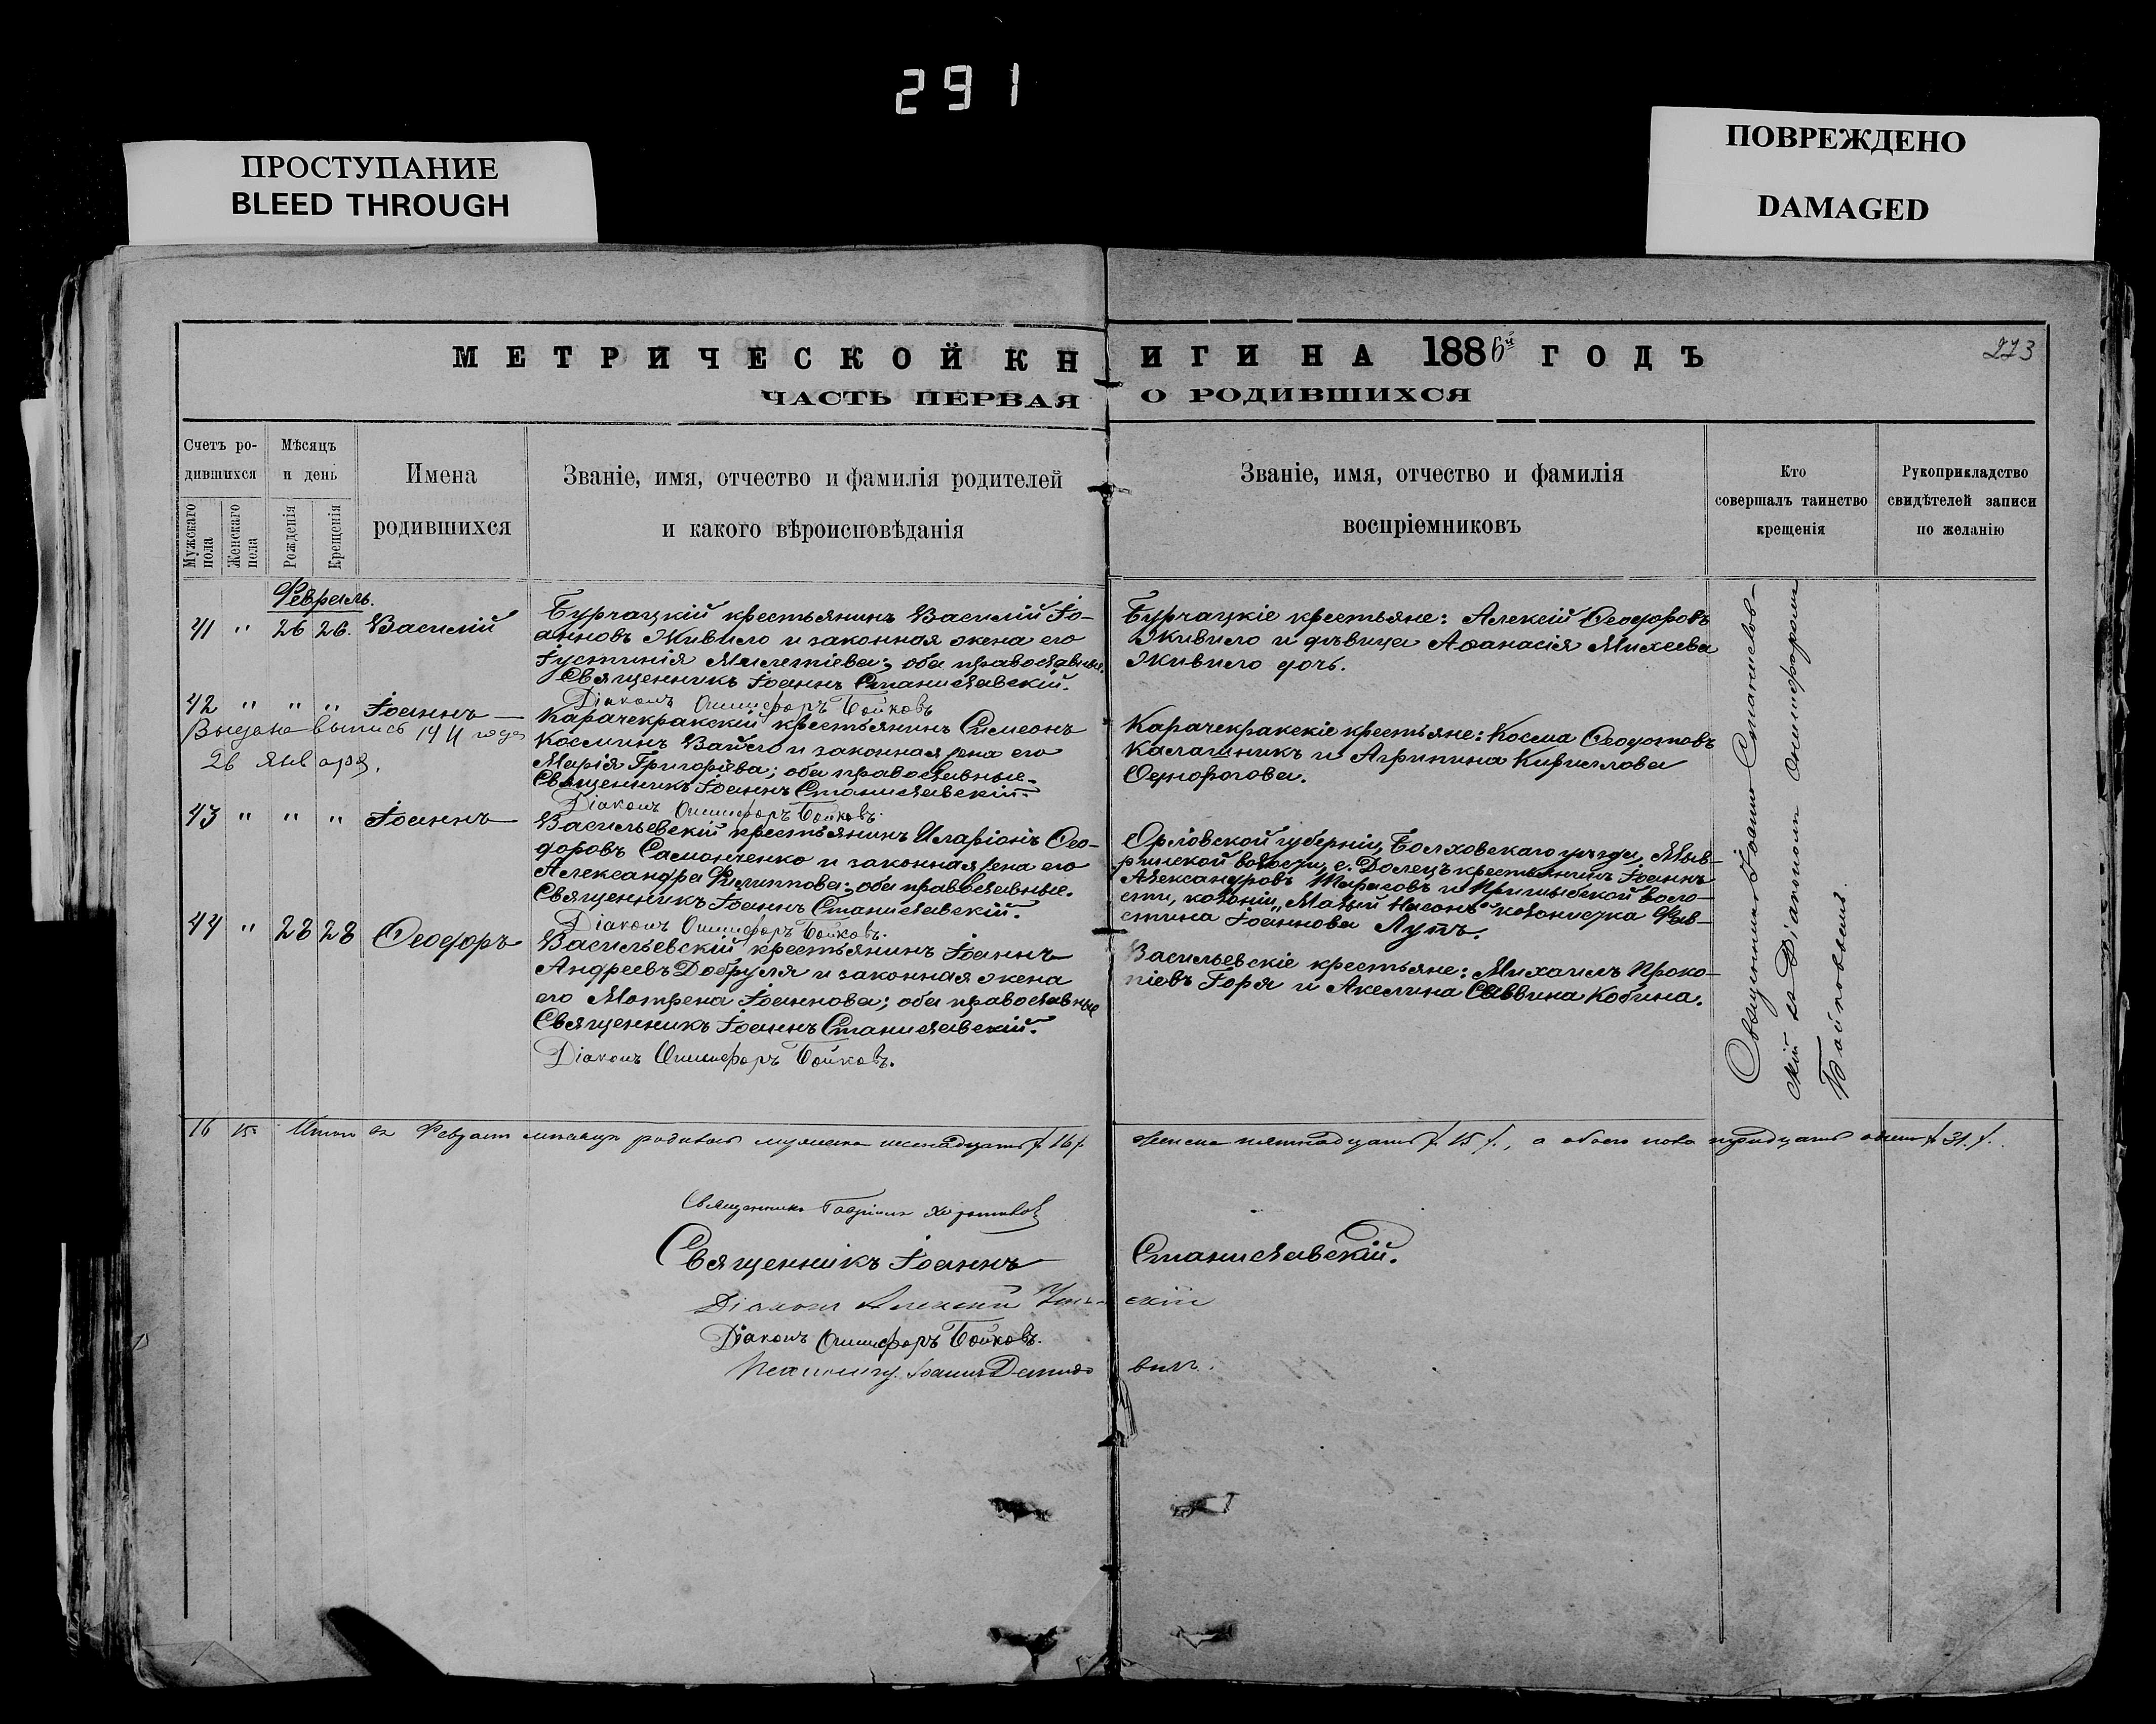 291
ПРОСТУПАНИЕ
BLEED THROUGH
ПОВРЕЖДЕНО
DAMAGED
МЕТРИЧЕСКОЙ КНИГИ НА 1886й ГОДЪ
273
ЧАСТЬ ПЕРВАЯ О РОДИВШИХСЯ
Счетъ ро-
дившихся
Мужскаго пола
Женскаго пола
Мѣсяцъ
и день
Рожденія
Крещенія
Имена
родившихся
Званіе, имя, отчество и фамилія родителей
и какого вѣроисповѣданія
Званіе, имя, отчество и фамилія
воспріемниковъ
Кто
совершалъ таинство
крещенія
Рукоприкладство
свидѣтелей записи
по желанію
Февраль.
41 " 26 26. Василій
Бурчацкій крестьянинъ Василій Іо-
анновъ Живило и законная жена его
Іустинія Мелетіева; оба православные.
Священникъ Іоаннъ Станиславскій.
Діаконъ Онисифоръ Бойковъ
Бурчацкіе крестьяне: Алексій Ѳеодоровъ
Живило и дѣвица Аѳанасія Михеева
Живило дочь.
42 " " " Іоаннъ
Выдана выпись 1911 года
26 января.
Карачекракскій крестьянинъ Симеонъ
Косминъ Вайло и законная жена его
Марія Григоріева; оба православные.
Священникъ Іоаннъ Станиславскій.
Діаконъ Онисифоръ Бойковъ.
Карачекракскіе крестьяне: Косма Ѳеодотовъ
Калашникъ и Агрипина Кириллова
Однорогова.
43 " " " Іоаннъ
Васильевскій крестьянинъ Иларіонъ Ѳео-
доровъ Самонченко и законная жена его
Александра Филиппова; оба православные.
Священникъ Іоаннъ Станиславскій.
Діаконъ Онисифоръ Бойковъ.
Орловской губерніи, Болховскаго уѣзда,
волости, с. Долецъ крестьянинъ Іоаннъ
Александровъ Тарасовъ и Пришибской воло-
сти, колоніи „Малый Насонъ" колонистка
Іоаннова Лупъ.
44 " 28 28 Ѳеодоръ
Васильевскій крестьянинъ Іоаннъ
Андреевъ Добруля и законная жена
его Мотрена Іоаннова; оба православные
Священникъ Іоаннъ Станиславскій.
Діаконъ Онисифоръ Бойковъ.
Васильевскіе крестьяне: Михаилъ Проко-
піевъ Горя и Акелина Саввина Кобина.
Священникъ Іоаннъ Станиславскій
съ Діакономъ Онисифоромъ
Бойковымъ.
16 15 Итого въ Февралѣ мѣсяцѣ родилось мужеска шестнадцать /. 16 /. женска пятнадцать /. 15 /., а обоего пола тридцать одинъ /. 31. /.
Священникъ Гавріилъ
Священникъ Іоаннъ Станиславскій.
Діаконъ Алексій
Діаконъ Онисифоръ Бойковъ.
Псаломщ. Іоаннъ